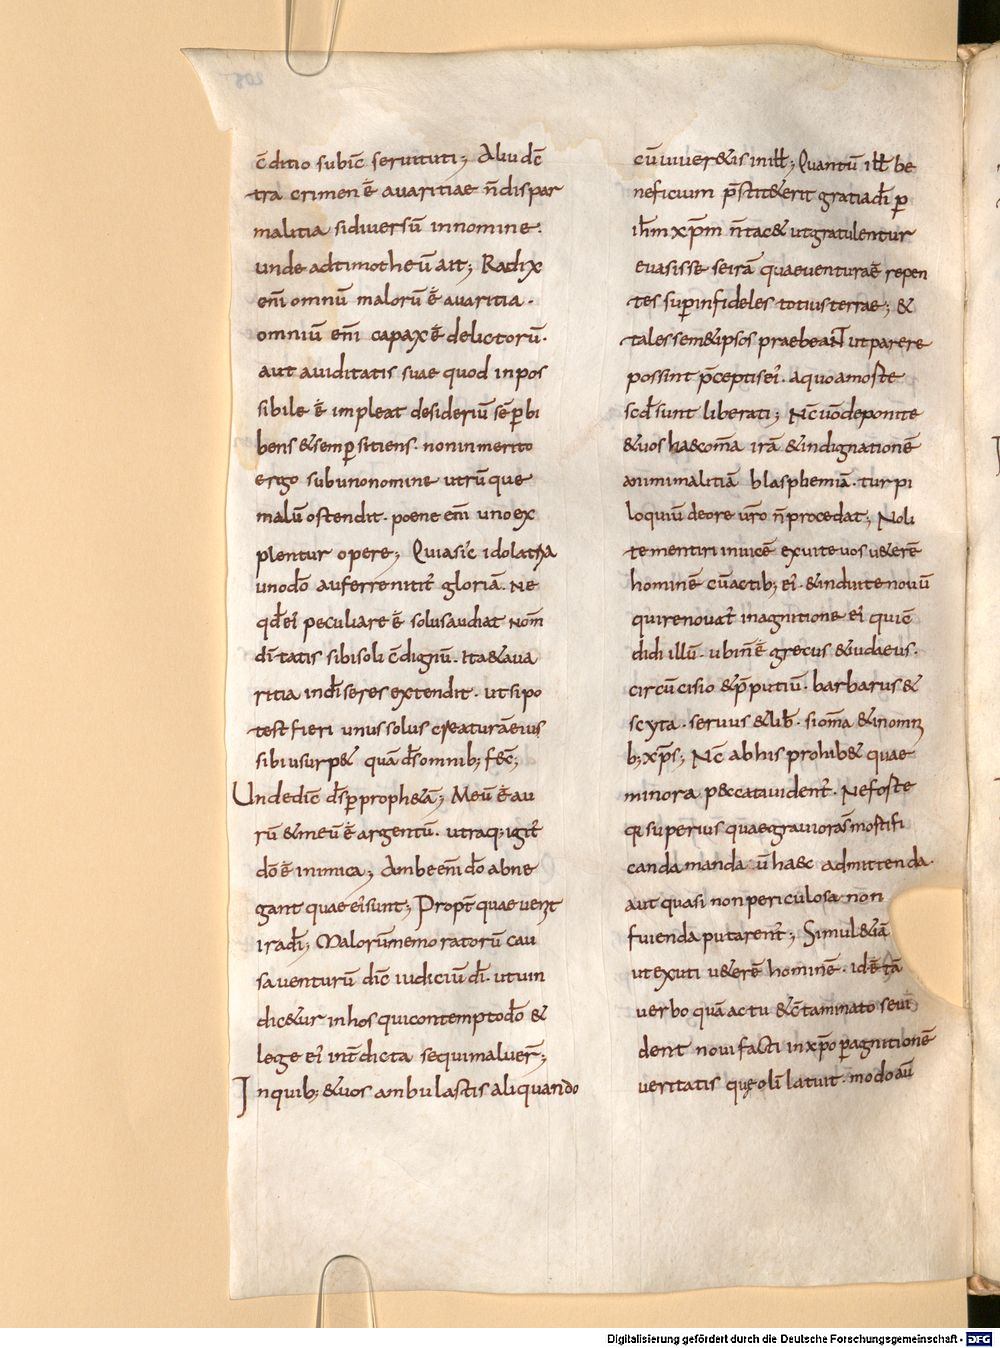 c̄ditio subiec̄ seruituti; Aliud c̄
tra crimen ē auaritiae n̄ dispar
malitia si diuersū in nomine.
unde ad timotheū ait; Radix
enī omnū malorū ē auaritia.
omniū enī capax ē delictorū.
aut auiditatis suae quod in pos
sibile ē impleat desideriū sēp bi
bens & semp sitiens. non inmerito
ergo sub uno nomine utrūque
malū ostendit. poene enī uno ex
plentur opere; Quia sic idolatria
uno dō auferre nitit̄ gloriā. Ne
qd̄ ei peculiare ē solus audiat nom̄
di tatis sibi soli c̄dignū. Ita & aua
ritia in dī se res extendit. ut si po
test fieri unus solus creaturā eius
sibi usurp& quā d̄s omnib; fec̄;
Unde dic̄ d̄s p proph&ā; Meū ē au
rū & meū ē argentū. utraq; igit̄
dō ē inimica; Ambe enī dō abne
gant quae ei sunt; Propt̄ quae uenit
ira dī; Malorū memoratorū cau
sa uenturū dic̄ iudiciū dī. ut uin
dic&ur in hos qui contempto dō &
lege ei int̄dicta sequi maluer̄;
In quib; & uos ambulastis aliquando
cū iuuer&is in ill̄; Quantū ill̄ be
neficium p̄stit&erit gratia dī p
ih̄m xp̄m n̄ tac& ut gratulentur
euasisse se irā quae uentura ē repen
tes sup infideles totius terrae; &
tales sem&ipsos praebeaNT ut parere
possint p̄ceptis ei. a quo a moste
scd̄ sunt liberati; Nc̄ uō deponite
& uos haec om̄a irā & indignationē
animi malitiā blasphemiā. turpi
loquiū de ore ur̄o n̄ procedat; Noli
te mentiri inuicē exuite uos u&erē
hominē cū actib; ei. & induite nouū
qui renouat̄ in agnitione ei qui c̄
didi illū. ubi n̄ ē grecus & iudaeus.
circūcisio & p̄putiū. barbarus &
scyta. seruus & lib̄. si om̄a & in omni
b; xp̄s; Nc̄ ab his prohib& quae
minora peccata uident̄. Ne foste
q superius quae grauiora s̄ mostifi
canda manda ū haec admittenda.
aut quasi non periculosa non
fuienda putarent̄; Simul &iā
ut exuti u&erē hominē. id ē tā
uerbo quā actu & c̄taminato se ui
dent noui facti in xp̄o p agnitionē
ueritatis quę olī latuit. modo aū
Digitalisierung gefördert durch die Deutsche Forschungsgemeinschaft - DFG